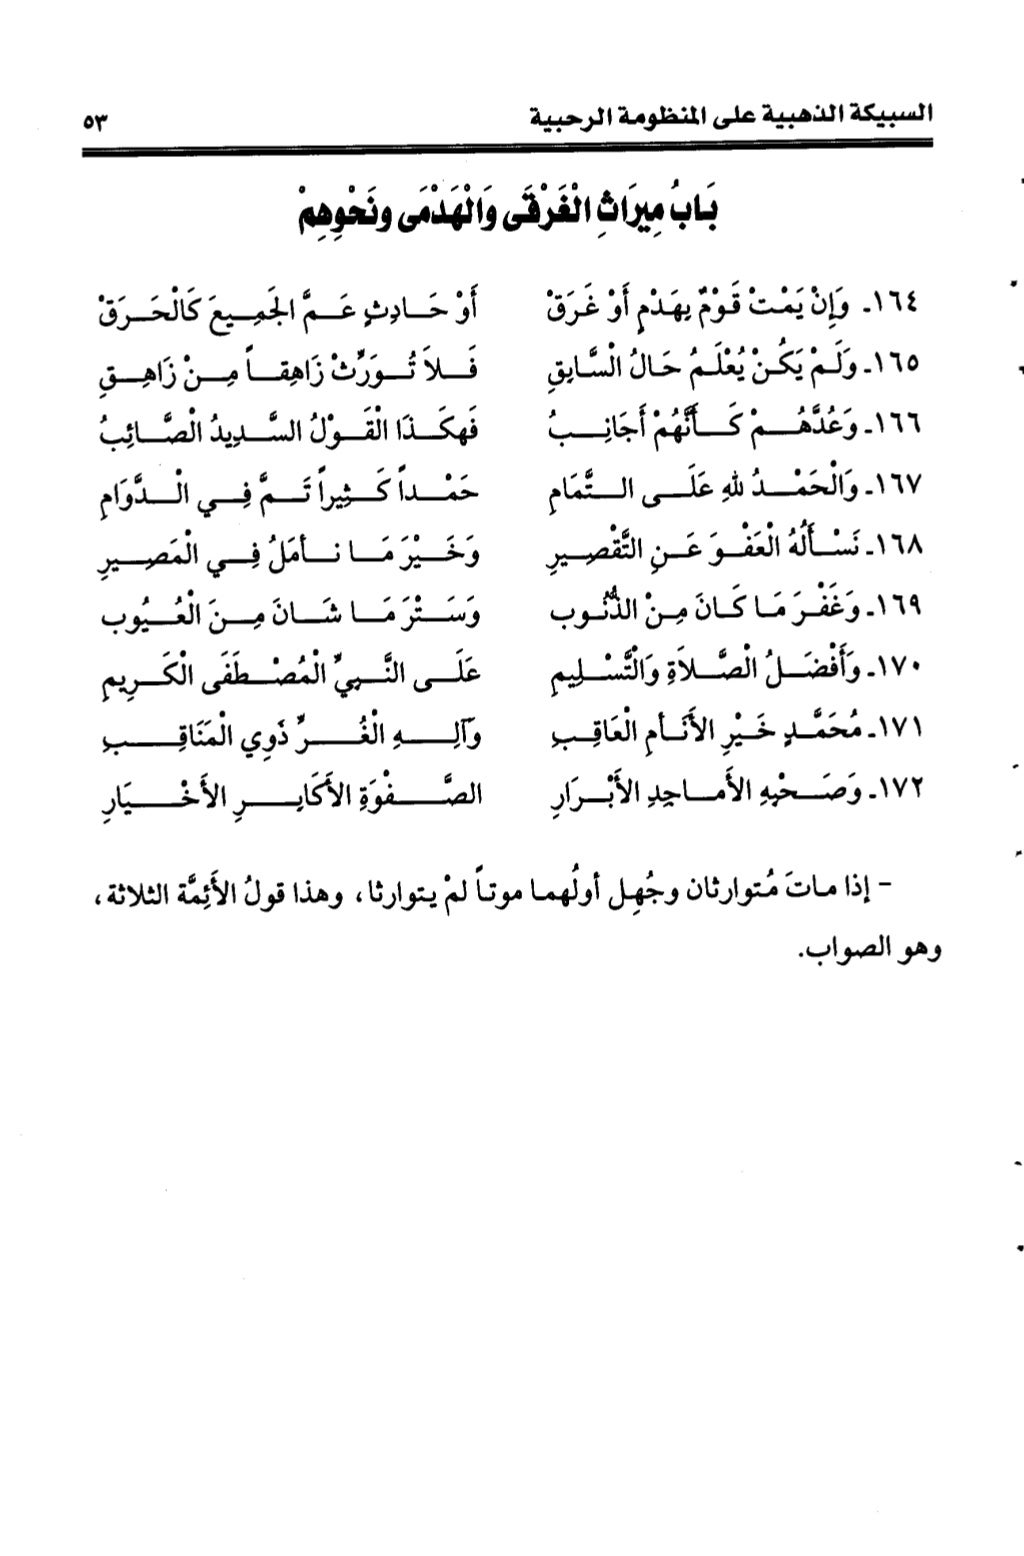 السبيكة الذهبية على المنظومة الرحبية ٥٣
بَابُ مِيرَاثِ الْغَرْقَى وَالْهَدْمَى ونَحْوِهِمْ
١٦٤ـ وَإِنْ يَمْتْ قَوْمٌ بِهَدْمٍ أَوْ غَرَقْ أَوْ حَادِثٍ عَمَّ الجَمِيعَ كَالْحَرَقْ
١٦٥ـ وَلَمْ يَكُنْ يُعْلَمُ حَالُ الْسَّابِقِ فَلاَ تُوَرِّثْ زَاهِقاً مِنْ زَاهِقِ
١٦٦ـ وَعُدَّهُمْ كَأَنَّهُمْ أَجَانِبُ فَهكَذَا الْقَوْلُ السَّدِيدُ الْصَّائِبُ
١٦٧ـ وَالْحَمْدُ للهِ عَلَى التَّمَامِ حَمْداً كَثِيراً تَمَّ فِي الْدَّوَامِ
١٦٨ـ نَسْأَلُهُ الْعَفْوَ عَنِ التَّقْصِيرِ وَخَيْرَ مَا نأمَلُ فِي الْمَصِيرِ
١٦٩ـ وَغَفْرَ مَا كَانَ مِنْ الذُّنُوب وَسَتْرَ مَا شَانَ مِنَ الْعُيُوب
١٧٠ـ وَأَفْضَلُ الْصَّلاَةِ وَالْتَّسْلِيمِ عَلَى النَّبِيِّ الْمُصْطَفَى الْكَرِيمِ
١٧١ـ مُحَمَّدٍ خَيْرِ الأَنَأمِ الْعَاقِبِ وَآلِهِ الْغُرِّ ذَوِي الْمَنَاقِبِ
١٧٢ـ وَصَحْبِهِ الأَماجِدِ الأَبْرَارِ الصَّفْوَةِ الأَكَابِرِ الأَخْيَارِ
- إذا ماتَ مُتوارثان وجُهِل أولُهما موتاً لمْ يتوارثا، وهذا قولُ الأَئِمَّة الثلاثة،
وهو الصواب.